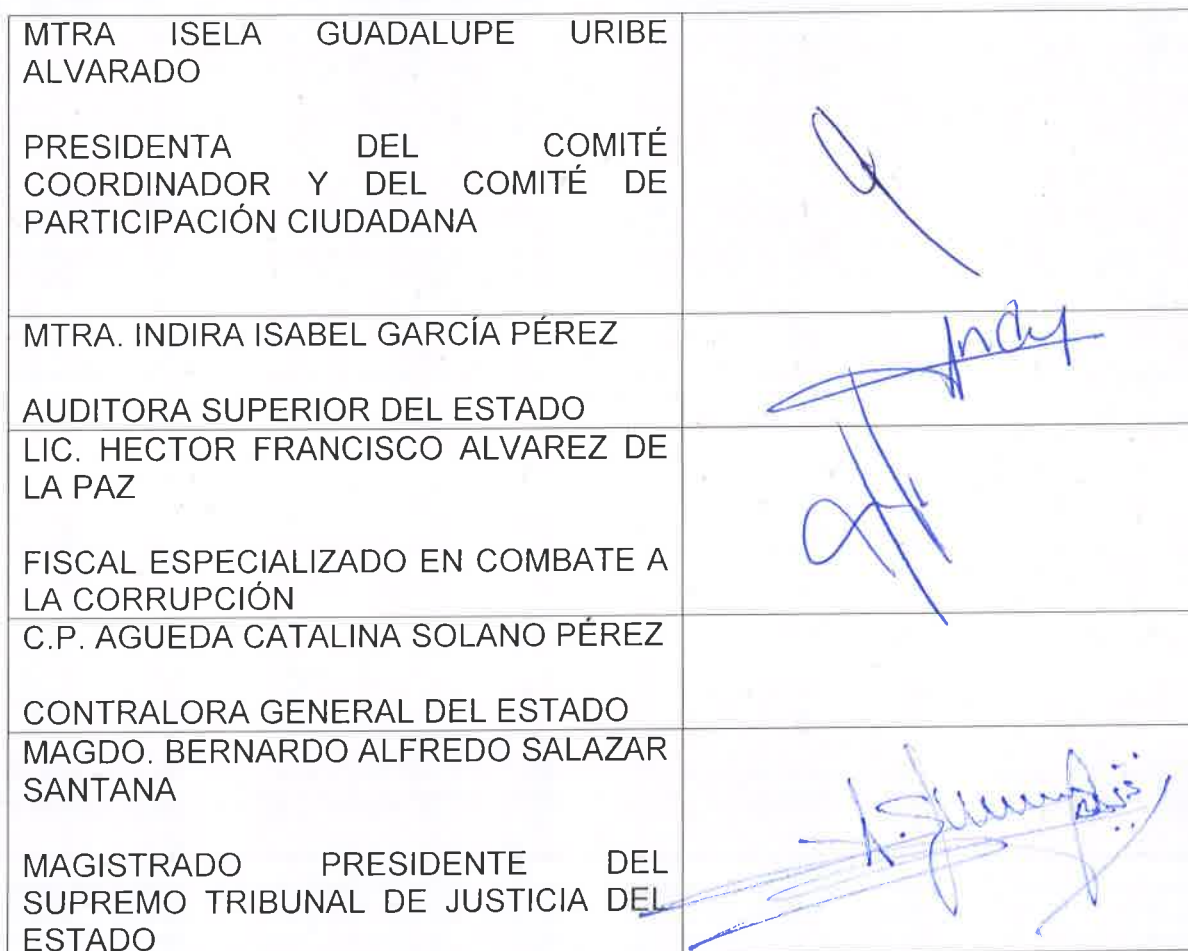 MTRA ISELA GUADALUPE URIBE
ALVARADO
PRESIDENTA DEL COMITÉ
COORDINADOR Y DEL COMITÉ DE
PARTICIPACIÓN CIUDADANA
MTRA. INDIRA ISABEL GARCÍA PÉREZ
AUDITORA SUPERIOR DEL ESTADO
LIC. HECTOR FRANCISCO ALVAREZ DE
LA PAZ
FISCAL ESPECIALIZADO EN COMBATE A
LA CORRUPCIÓN
C.P. AGUEDA CATALINA SOLANO PÉREZ
CONTRALORA GENERAL DEL ESTADO
MAGDO. BERNARDO ALFREDO SALAZAR
SANTANA
MAGISTRADO PRESIDENTE DEL
SUPREMO TRIBUNAL DE JUSTICIA DEL
ESTADO